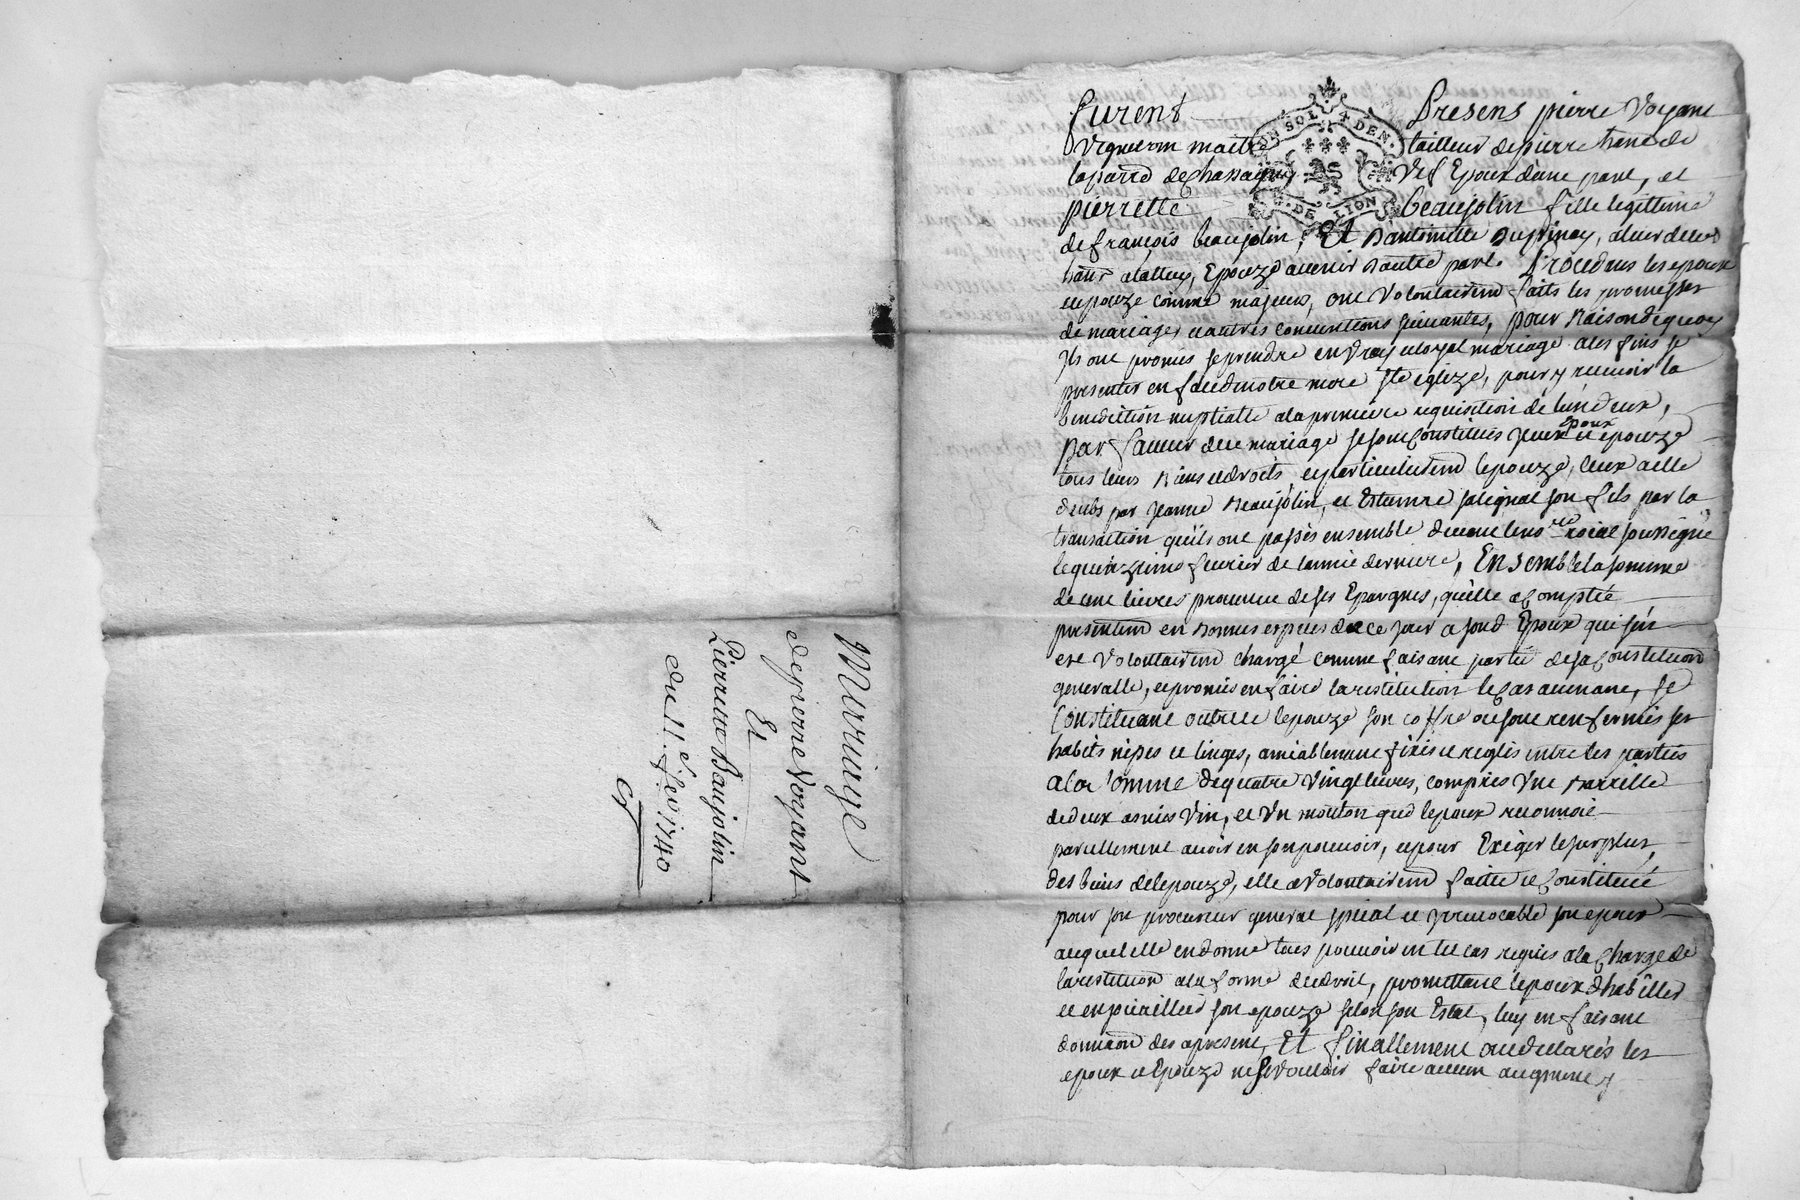 Mariage
de pierre Voyant
Et
Pierrette Baujolin
du 11.e fev. 1740
Furent Presens pierre Voyant
UN SOL 4 DEN.
G. DE LION
Vigneron maitre tailleur de pierre
de Chassagny Vef Epoux d'une part, et
pierrette beaujolin fille legittime
de françois beaujolin, Et
Epouze avenir dautre part. Procedans les epoux
et epouze comme majeurs, ont Volontairemt faits les promesses
de mariage, et autres conventions suivantes, pour Raison de quoy
Ils ont promis se prendre en Vray et loyal mariage a les fins se
presenter en face de notre mere Ste eglize, pour y recevoir la
benediction nuptialle a la premiere requisition de lun deux,
Par faveur du mariage se sont Constitués epoux et epouze
tous leurs Biens et droits, et particulieremt lepouze, ceux a elle
deubs par Jeanne Beaujolin, et Estienne son fils par la
transaction qu'ils ont passés ensemble devant le no.re roial soussigné
le quinzieme fevrier de lannée derniere, Ensemble la somme
de cent livres provenue de ses Epargnes, qu'elle a Comptée
presentemt en Bonnes especes de ce jour a sond Epoux qui s'en
est Volontairemt chargé comme faisant partie de sa Constitution
generalle, et promis en faire la restitution le Cas avenant, se
Constituant outre ce lepouze son coffre ou sont renfermés ses
habits nipes et linges, amiablement fixés et reglés entre les parties
a la somme de quatre Vingt livres, compris Une Barrille
de deux asnées Vin, et Un mouton que lepoux reconnoit
pareillement avoir en son pouvoir, et pour Exiger le surplus
des biens de lepouze, elle a Volontairemt faitte et Constitué
pour son procureur general special et irrevocable son epoux
auquel elle en donne tous pouvoir en tel cas requis a la Charge de
la restitution a la forme du droit, promettant lepoux d'habiller
et enjoüailler son epouze selon son Estat, luy en faisant
donnaon des apresent, Et finallement ont declarés les
epoux et Epouze ne Vouloir faire aucun augment,